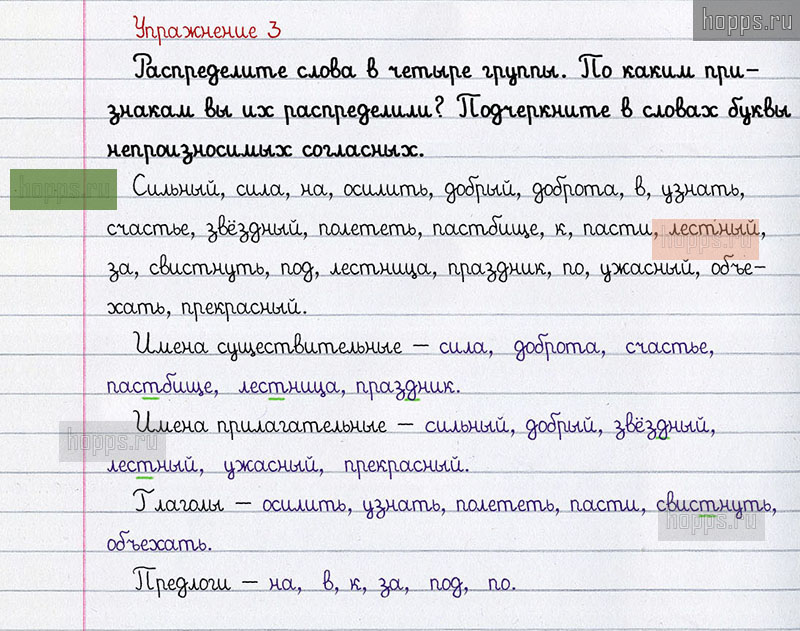 hopps.ru
Упражнение 3
Распределите слова в четыре группы. По каким при-
знакам вы их распределили? Подчеркните в словах буквы
непроизносимых согласных.
hopps.ru
Сильный, сила, на, осилить, добрый, доброта, в, узнать,
счастье, звёздный, полететь, пастбище, к, пасти, лестный,
hopps.ru
за, свистнуть, под, лестница, праздник, по, ужасный, объе-
хать, прекрасный.
Имена существительные – сила, доброта, счастье,
пастбище, лестница, праздник.
Имена прилагательные – сильный, добрый, звёздный,
hopps.ru
лестный, ужасный, прекрасный.
Глаголы – осилить, узнать, полететь, пасти, свистнуть,
hopps.ru
объехать.
Предлоги – на, в, к, за, под, по.